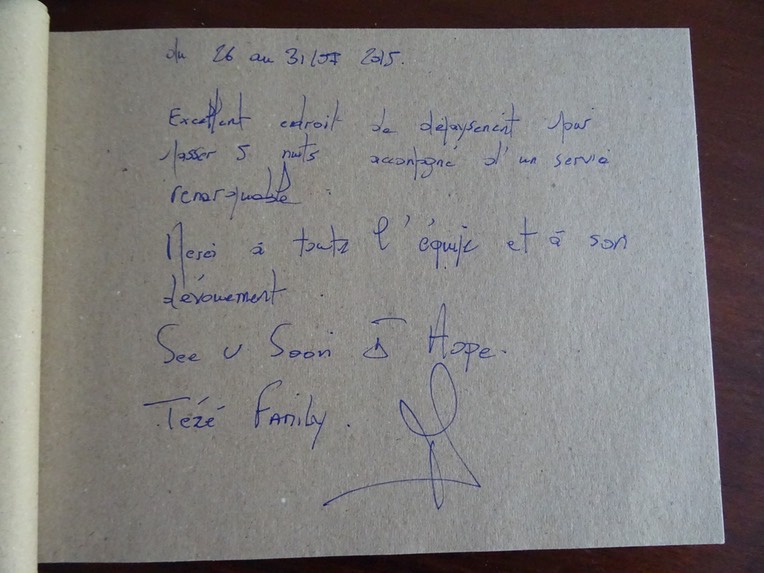 du 26 au 31/07 2015.
Excellent endroit de dépaysement pour
passer 5 nuits accompagné d'un service
remarquable
Merci à toute l'équipe et à son
dévouement
See U Soon I Hope.
Tézé Family.